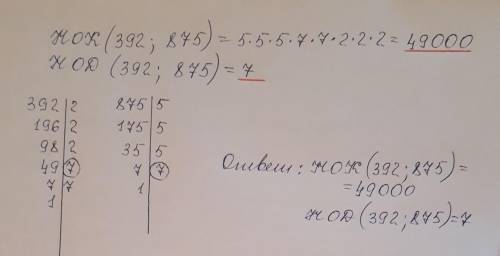 НОК (392; 875) = 5·5·5·7·7·2·2·2 = 49000
НОД (392; 875) = 7
392 | 2
196 | 2
98 | 2
49 | 7
7 | 7
1
875 | 5
175 | 5
35 | 5
7 | 7
1
Ответ: НОК (392; 875) =
= 49000
НОД (392; 875) = 7